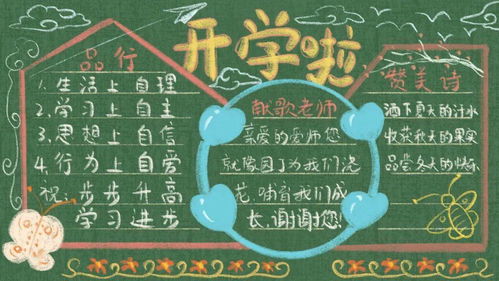 开学啦
品行
1.生活上自理
2.学习上自主
3.思想上自信
4.行为上自爱
祝:步步升高
学习进步
献歌老师
亲爱的老师您
就像园丁为我们浇
花,哺育我们成
长,谢谢您!
赞美诗
洒下夏天的汗水
收获秋天的果实
品尝冬天的快乐